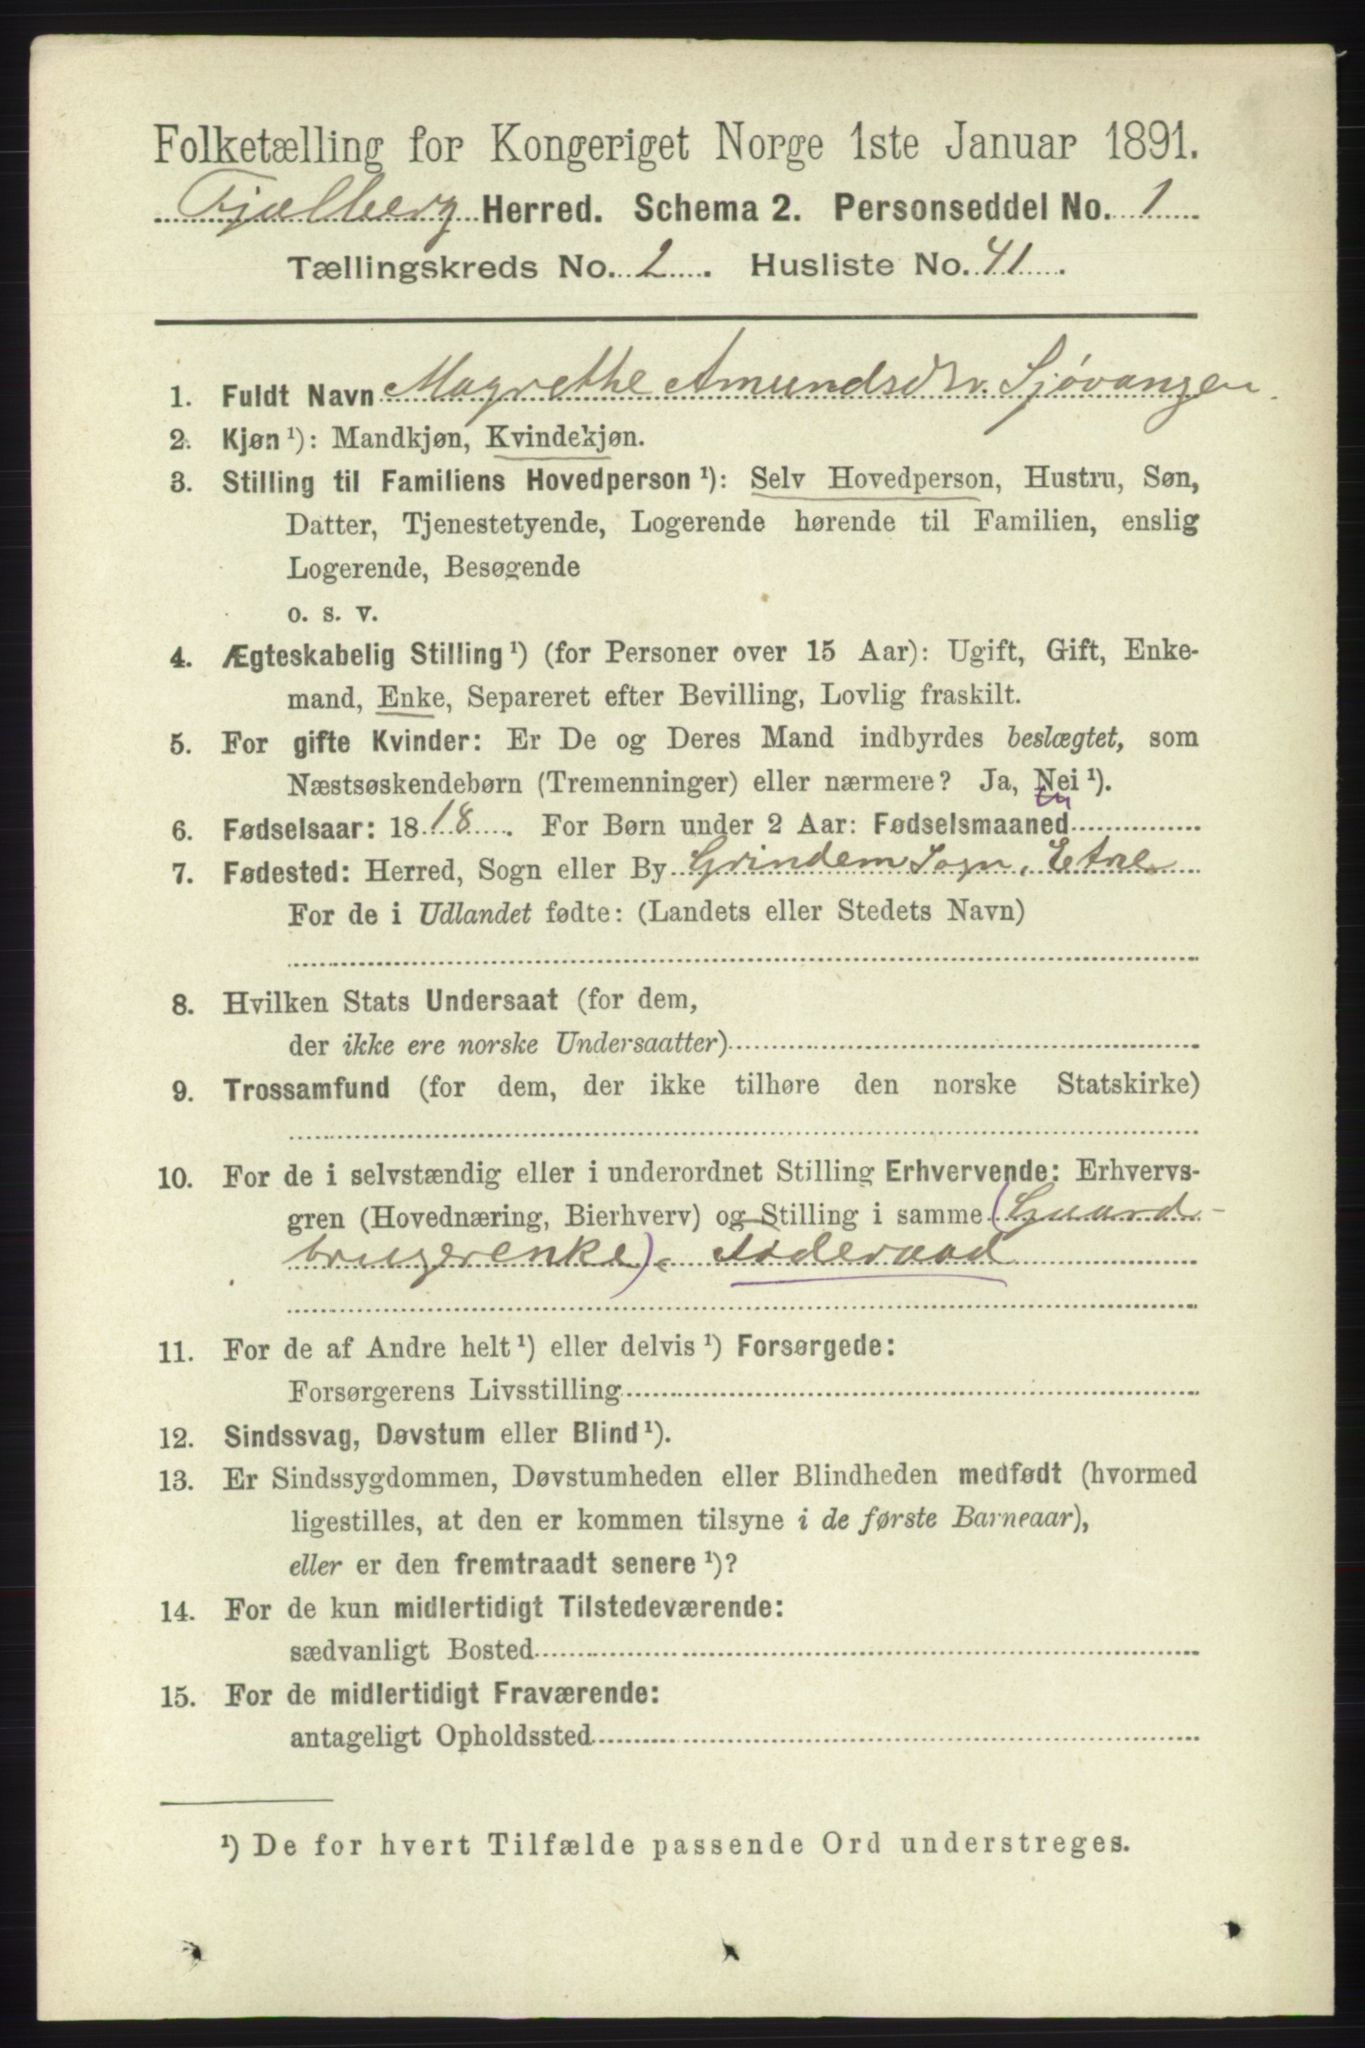 Folketælling for Kongeriget Norge 1ste Januar 1891.
Fjælberg Herred. Schema 2. Personseddel No. 1
Tællingskreds No. 2. Husliste No. 41.
1. Fuldt Navn Magrethe Amundsdtr. Sjövangen
2. Kjøn ¹): Mandkjøn, Kvindekjøn.
3. Stilling til Familiens Hovedperson ¹): Selv Hovedperson, Hustru, Søn,
Datter, Tjenestetyende, Logerende hørende til Familien, enslig
Logerende, Besøgende
o. s. v.
4. Ægteskabelig Stilling ¹) (for Personer over 15 Aar): Ugift, Gift, Enke-
mand, Enke, Separeret efter Bevilling, Lovlig fraskilt.
5. For gifte Kvinder: Er De og Deres Mand indbyrdes beslægtet, som
Næstsøskendebørn (Tremenninger) eller nærmere? Ja, Nei ¹).
6. Fødselsaar: 1818. For Børn under 2 Aar: Fødselsmaaned
7. Fødested: Herred, Sogn eller By Grindem Sogn, Etne
For de i Udlandet fødte: (Landets eller Stedets Navn)
8. Hvilken Stats Undersaat (for dem,
der ikke ere norske Undersaatter)
9. Trossamfund (for dem, der ikke tilhøre den norske Statskirke)
10. For de i selvstændig eller i underordnet Stilling Erhvervende: Erhvervs-
gren (Hovednæring, Bierhverv) og Stilling i samme (Gaard-
brugerenke). Föderaad
11. For de af Andre helt ¹) eller delvis ¹) Forsørgede:
Forsørgerens Livsstilling
12. Sindssvag, Døvstum eller Blind ¹).
13. Er Sindssygdommen, Døvstumheden eller Blindheden medfødt (hvormed
ligestilles, at den er kommen tilsyne i de første Barneaar),
eller er den fremtraadt senere ¹)?
14. For de kun midlertidigt Tilstedeværende:
sædvanligt Bosted
15. For de midlertidigt Fraværende:
antageligt Opholdssted
¹) De for hvert Tilfælde passende Ord understreges.